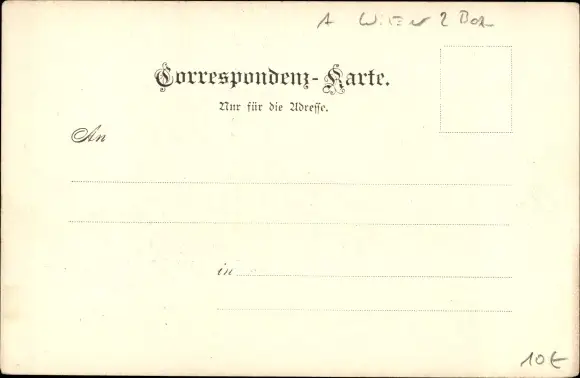 A WIEN 2 Bez
Correspondenz-Karte.
Nur für die Adresse.
An
in
10€